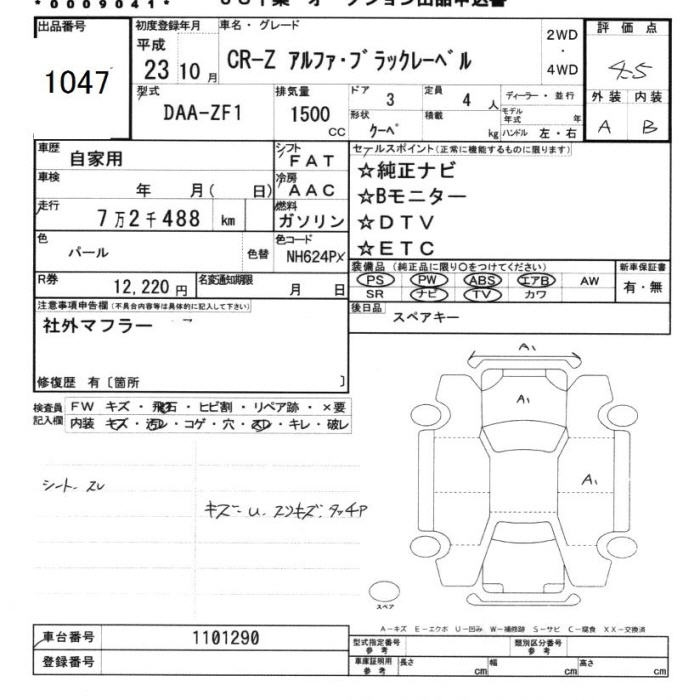 *0009041*
出品番号 初度登録年月 車名・グレード 2WD ・ 4WD 評価点
1047 平成 23 10月 CR-Z アルファ・ブラックレーベル 4.5
型式 排気量 ドア 3 定員 4人 ディーラー・並行 外装 内装
DAA-ZF1 1500 CC 形状 クーペ 積載 kg モデル年式 年 A B
ハンドル 左・右
車歴 自家用 シフト FAT セールスポイント(正常に機能するものに限ります)
車検 年 月( 日) 冷房 AAC ☆純正ナビ
走行 7万2千488 km 燃料 ガソリン ☆Bモニター
☆DTV
色 パール 色替 色コード NH624P ☆ETC
R券 12,220円 名変通知期限 月 日 装備品(純正品に限り○をつけてください) 新車保証書
PS PW ABS エアB AW 有・無
SR ナビ TV カワ
注意事項申告欄(不具合内容等は具体的に記入して下さい) 後日品 スペアキー
社外マフラー
修復歴 有〔箇所 〕
検査員記入欄 FW キズ・飛石・ヒビ割・リペア跡・×要
内装 キズ・汚レ・コゲ・穴・スレ・キレ・破レ
A1
A1
A1
シート スレ
キズ U スリキズ タッチP
スペア
A−キズ E−エクボ U−凹み W−補修跡 S−サビ C−腐食 XX−交換済
車台番号 1101290 型式指定番号 参考 類別区分番号 参考
登録番号 車庫証明用 参考 長さ cm 幅 cm 高さ cm